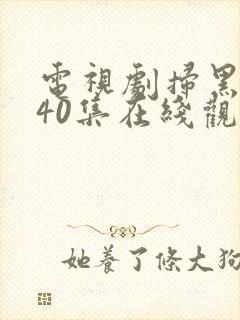 電視劇掃黑
40集在綫觀
她養了條大狗